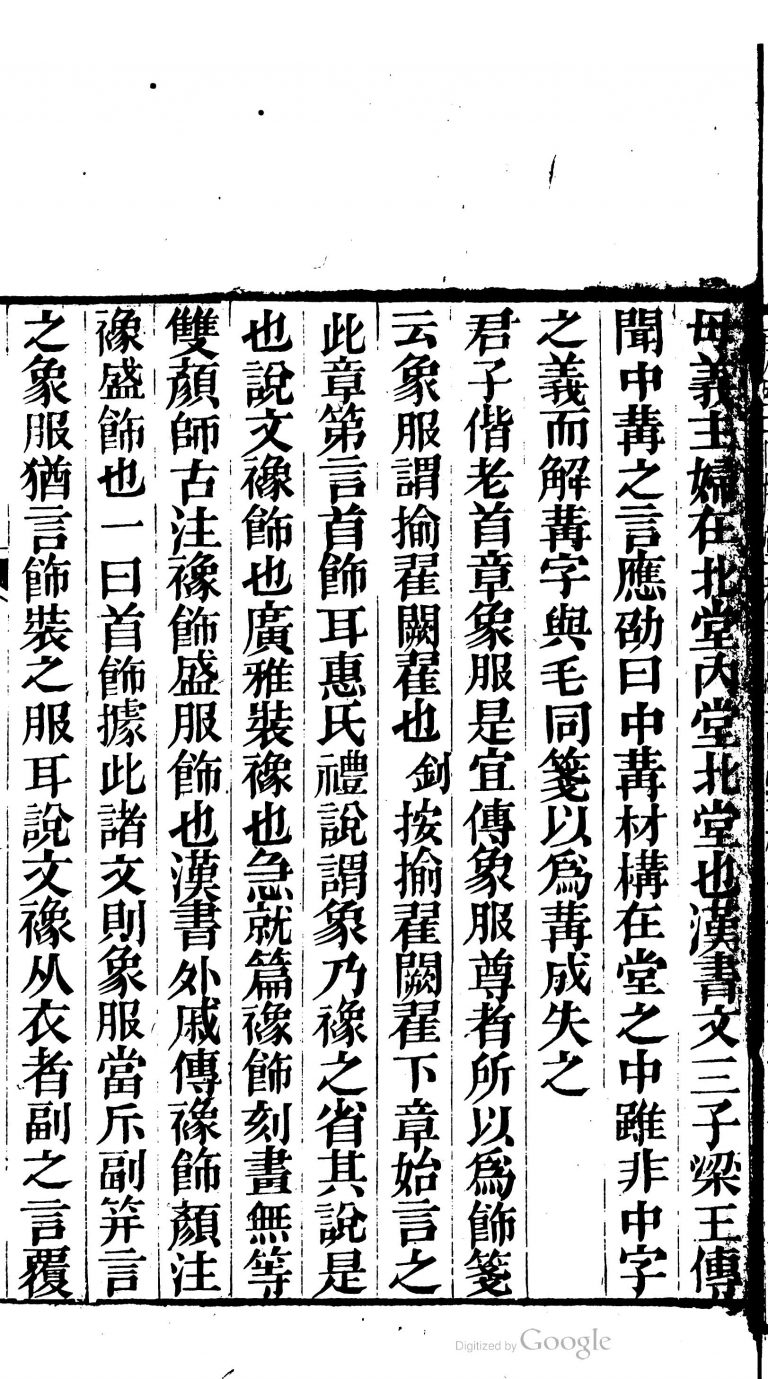 毋義主婦在北堂內堂北堂也漢書文三子梁王傳
聞中冓之言應劭曰中冓材構在堂之中雖非中字
之義而解冓字與毛同箋以為冓成失之
君子偕老首章象服是宜傳象服尊者所以為飾箋
云象服謂揄翟闕翟也釗按揄翟闕翟下章始言之
此章第言首飾耳惠氏禮說謂象乃襐之省其說是
也說文襐飾也廣雅裝襐也急就篇襐飾刻畫無等
雙顏師古注襐飾盛服飾也漢書外戚傳襐飾顏注
襐盛飾也一曰首飾據此諸文則象服當斥副笄言
之象服猶言飾裝之服耳說文襐从衣者副之言覆
Digitized by Google